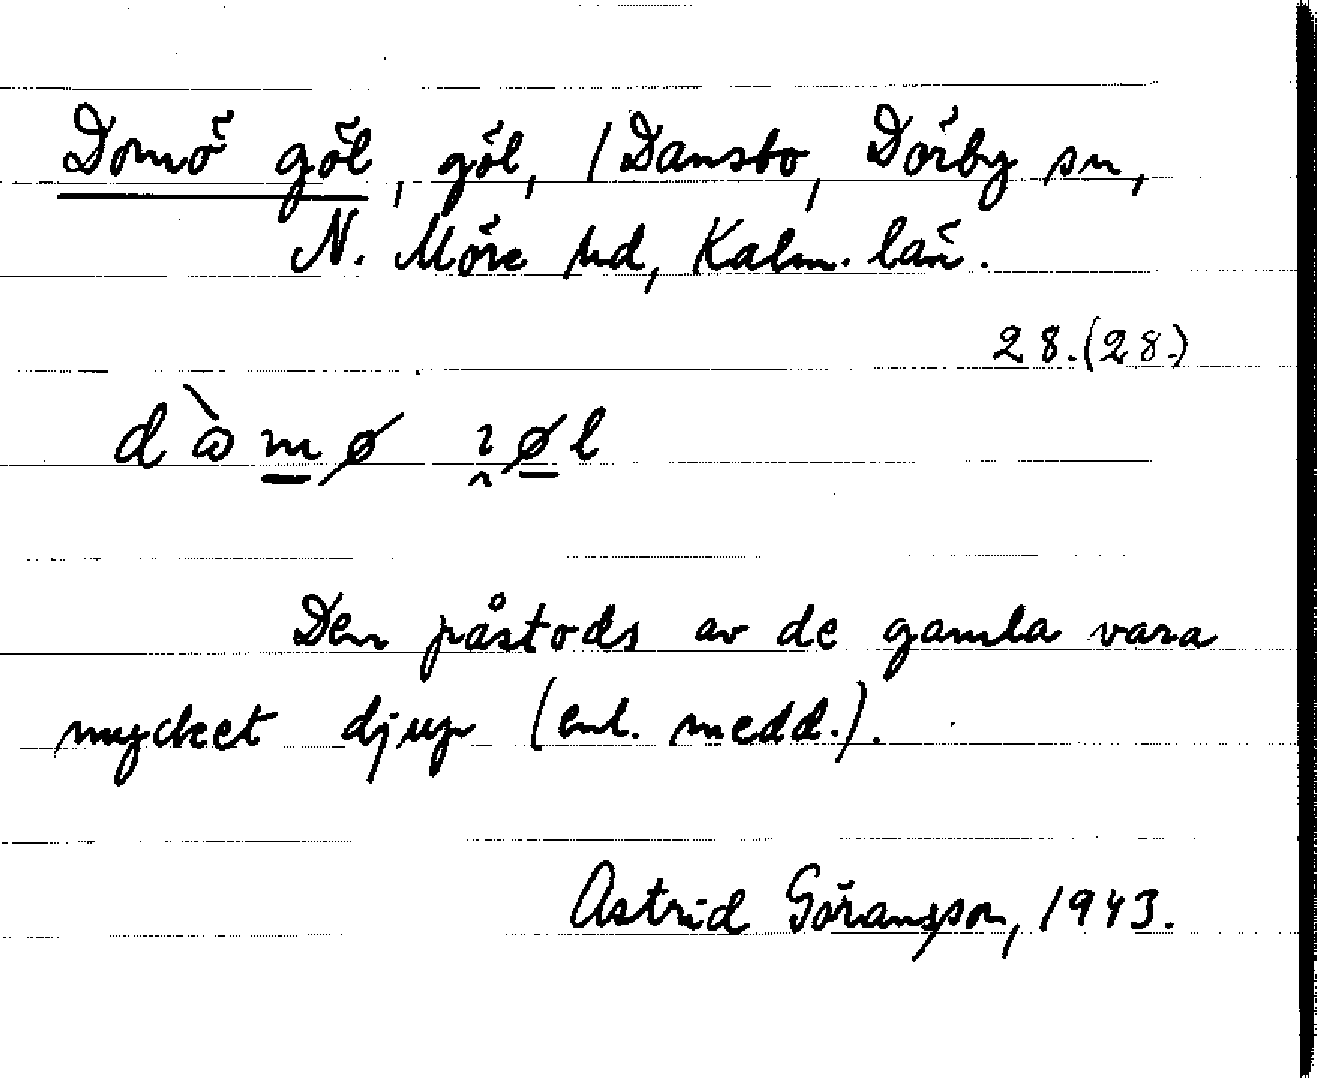 Domö göl, göl, / Dansbo, Dörby sn,
N. Möre hd, Kalm. län.
28.(28.)
Den påstods av de gamla vara
mycket djup (enl. medd.).
Astrid Göransson, 1943.